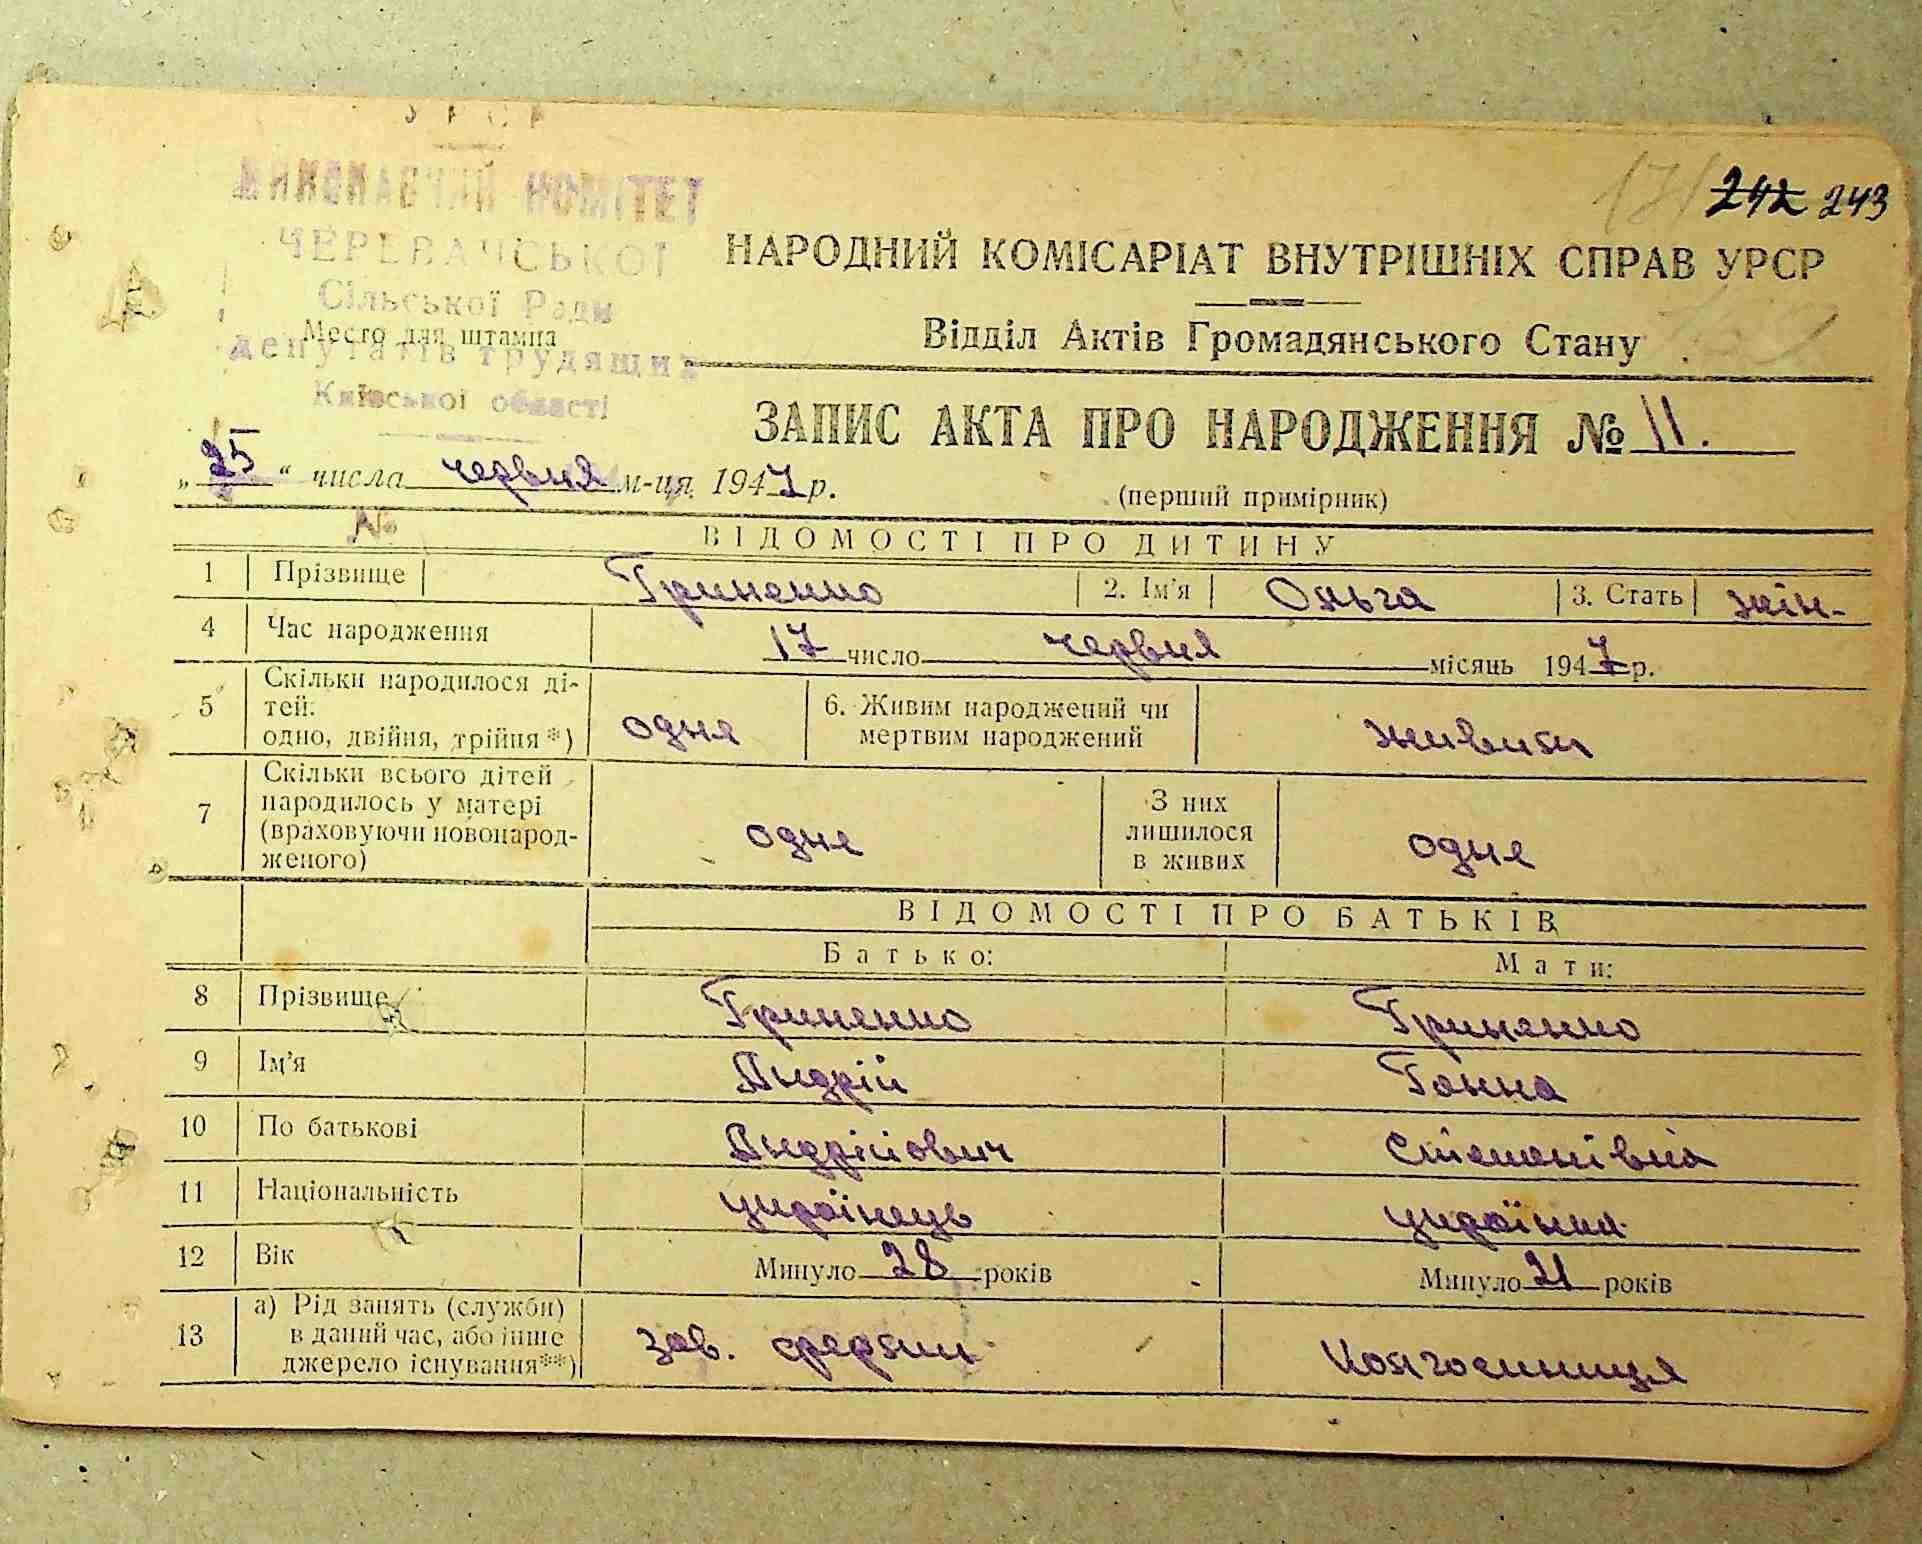 УРСР
ВИКОНАВЧИЙ КОМІТЕТ
ЧЕРЕВАЧСЬКОЇ
Сільської Ради
Место для штампа
депутатів трудящих
Київської області
171 242 243
НАРОДНИЙ КОМІСАРІАТ ВНУТРІШНІХ СПРАВ УРСР
Відділ Актів Громадянського Стану
ЗАПИС АКТА ПРО НАРОДЖЕННЯ № 11.
„25“ числа червня м-ця 1947 р.
(перший примірник)
№
ВІДОМОСТІ ПРО ДИТИНУ
1 Прізвище Гриненко 2. Ім'я Ольга 3. Стать жін-
4 Час народження 17 число червня місяць 1947 р.
5 Скільки народилося ді-
тей:
одно, двійня, трійня*) одня 6. Живим народжений чи
мертвим народжений живим
7 Скільки всього дітей
народилось у матері
(враховуючи новонарод-
женого) одня З них
лишилося
в живих одня
ВІДОМОСТІ ПРО БАТЬКІВ
Батько: Мати:
8 Прізвище Гриненко Гриненко
9 Ім'я Андрій Ганна
10 По батькові Андрійович Степанівна
11 Національність українець українка
12 Вік Минуло 28 років Минуло 21 років
13 а) Рід занять (служби)
в даний час, або інше
джерело існування**) зав. ферми Колгоспниця